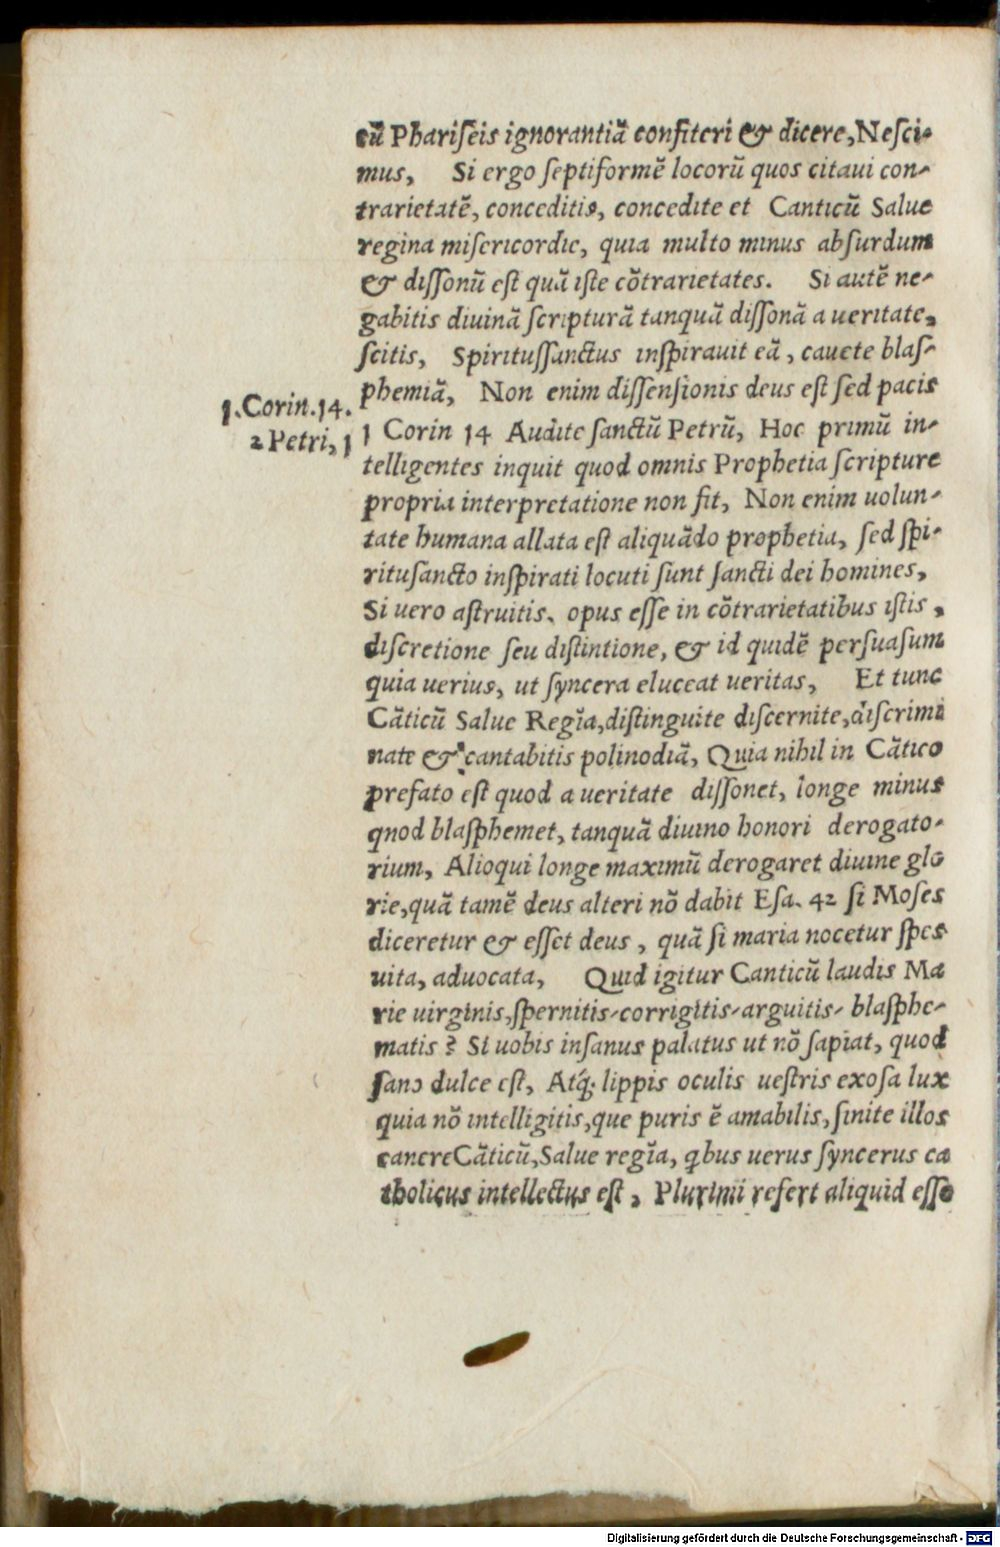 cũ Phariſeis ignorantiã confiteri & dicere,Neſci-
mus, Si ergo ſeptiformẽ locorũ quos citaui con-
trarietatẽ, conceditis, concedite et Canticũ Salue
regina miſericordie, quia multo minus abſurdum
& diſſonũ eſt quã iſte cõtrarietates. Si autẽ ne-
gabitis diuinã ſcripturã tanquã diſſonã a ueritate,
ſcitis, Spirituſſanctus inſpirauit eã, cauete blaſ-
phemiã, Non enim diſſenſionis deus eſt ſed pacis
1.Corin.14.
2 Petri, 1
1 Corin 14 Audite ſanctũ Petrũ, Hoc primũ in-
telligentes inquit quod omnis Prophetia ſcripture
propria interpretatione non fit, Non enim uolun-
tate humana allata eſt aliquãdo prophetia, ſed ſpi-
rituſancto inſpirati locuti ſunt ſancti dei homines,
Si uero aſtruitis, opus eſſe in cõtrarietatibus iſtis,
diſcretione ſeu diſtintione, & id quidẽ perſuaſum
quia uerius, ut ſyncera eluceat ueritas, Et tunc
Cãticũ Salue Regĩa,diſtinguite diſcernite,diſcrimi
nate & cantabitis polinodiã, Quia nihil in Cãtico
prefato eſt quod a ueritate diſſonet, longe minus
qnod blaſphemet, tanquã diuino honori derogato-
rium, Alioqui longe maximũ derogaret diuine glo
rie,quã tamẽ deus alteri nõ dabit Eſa. 42 ſi Moſes
diceretur & eſſet deus, quã ſi maria nocetur ſpes
uita, aduocata, Quid igitur Canticũ laudis Ma
rie uirginis,ſpernitis/corrigitis/arguitis/ blaſphe-
matis ? Si uobis inſanus palatus ut nõ ſapiat, quod
ſano dulce eſt, Atq; lippis oculis ueſtris exoſa lux
quia nõ intelligitis,que puris ẽ amabilis,ſinite illos
canereCãticũ,Salue regĩa, qbus uerus ſyncerus ca
tholicus intellectus eſt, Plurimi refert aliquid eſſe
Digitalisierung gefördert durch die Deutsche Forschungsgemeinschaft - DFG